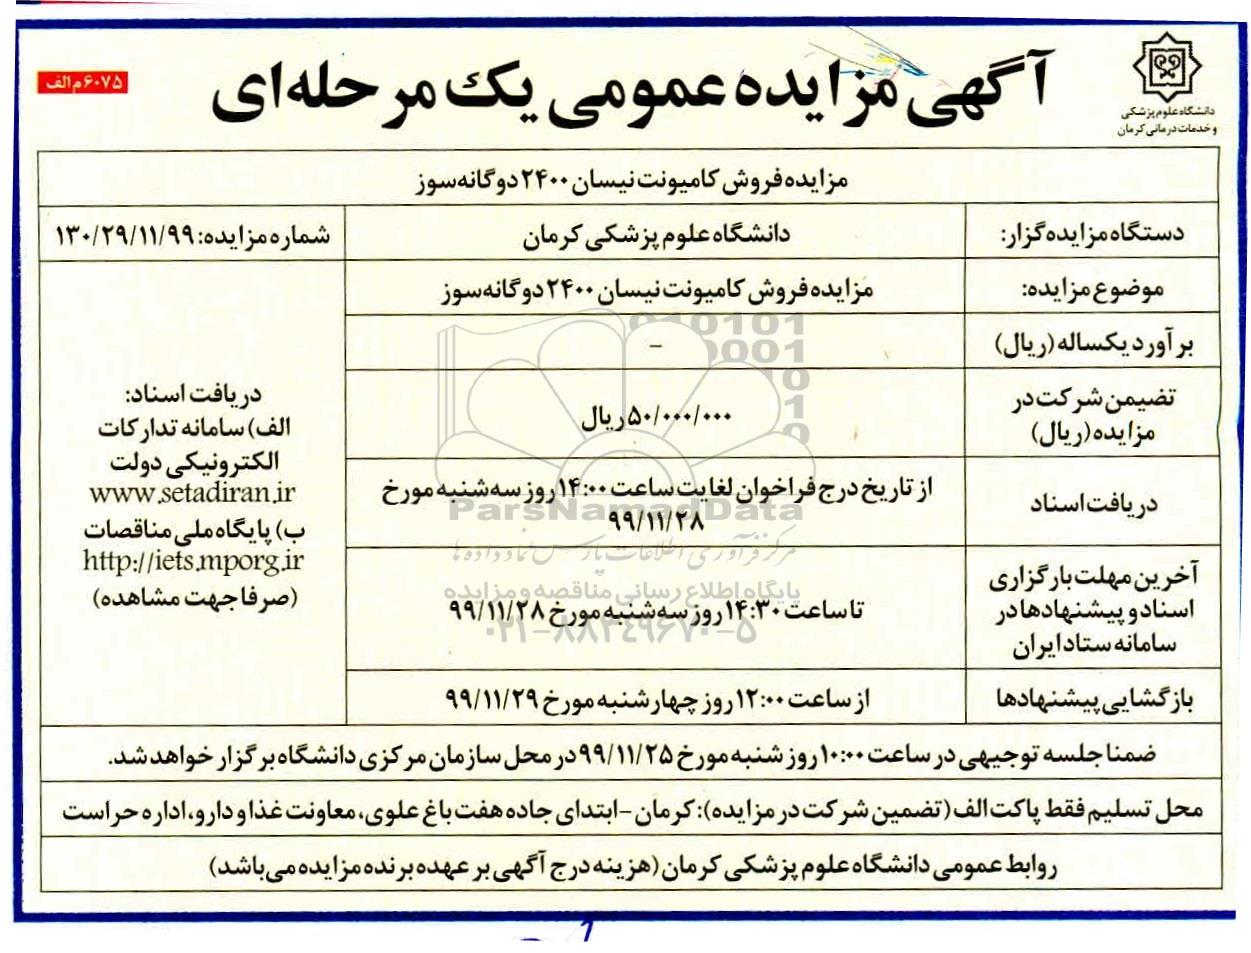 دانشگاه علوم پزشکی
و خدمات درمانی کرمان
آگهی مزایده عمومی یک مرحله‌ای
۶۰۷۵ م الف
مزایده فروش کامیونت نیسان ۲۴۰۰ دوگانه سوز
دستگاه مزایده گزار:
دانشگاه علوم پزشکی کرمان
شماره مزایده: ۱۳۰/۲۹/۱۱/۹۹
موضوع مزایده:
مزایده فروش کامیونت نیسان ۲۴۰۰ دوگانه سوز
برآورد یکساله (ریال)
-
تضیمن شرکت در
مزایده (ریال)
۵۰/۰۰۰/۰۰۰ ریال
دریافت اسناد
از تاریخ درج فراخوان لغایت ساعت ۱۴:۰۰ روز سه شنبه مورخ
۹۹/۱۱/۲۸
آخرین مهلت بارگزاری
اسناد و پیشنهادها در
سامانه ستاد ایران
تا ساعت ۱۴:۳۰ روز سه شنبه مورخ ۹۹/۱۱/۲۸
بازگشایی پیشنهادها
از ساعت ۱۲:۰۰ روز چهارشنبه مورخ ۹۹/۱۱/۲۹
دریافت اسناد:
الف) سامانه تدارکات
الکترونیکی دولت
www.setadiran.ir
ب) پایگاه ملی مناقصات
http://iets.mporg.ir
(صرفا جهت مشاهده)
ضمنا جلسه توجیهی در ساعت ۱۰:۰۰ روز شنبه مورخ ۹۹/۱۱/۲۵ در محل سازمان مرکزی دانشگاه برگزار خواهد شد.
محل تسلیم فقط پاکت الف (تضمین شرکت در مزایده): کرمان - ابتدای جاده هفت باغ علوی، معاونت غذا و دارو، اداره حراست
روابط عمومی دانشگاه علوم پزشکی کرمان (هزینه درج آگهی بر عهده برنده مزایده می‌باشد)
ParsNamadData
مرکز فرآوری اطلاعات پارس نماد داده ها
پایگاه اطلاع رسانی مناقصه و مزایده
۰۲۱-۸۸۳۴۹۶۷۰-۵